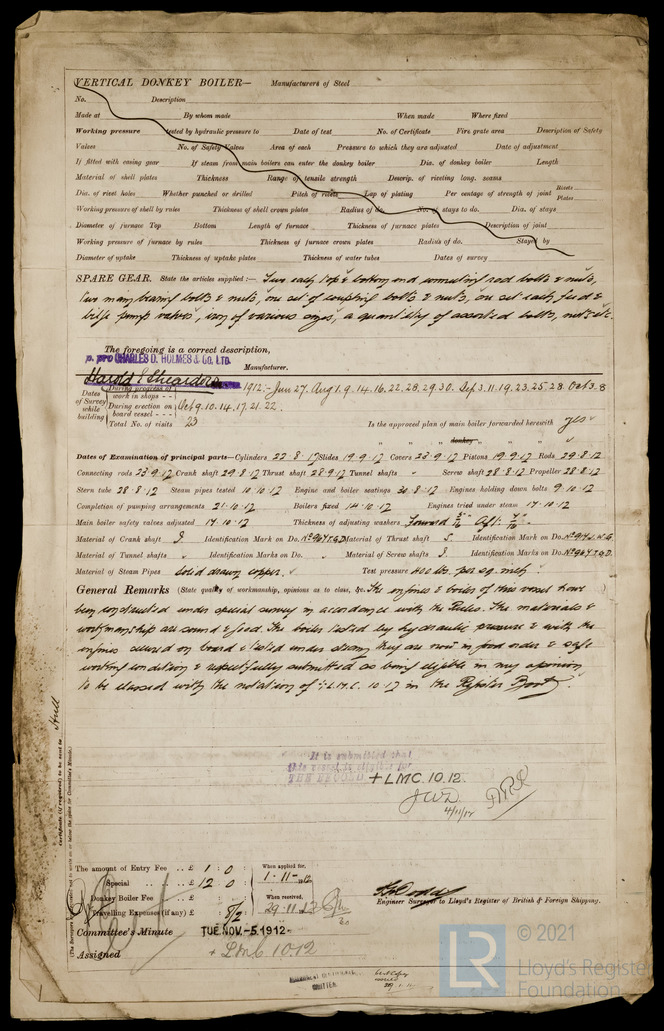 VERTICAL DONKEY BOILER— Manufacturers of Steel
No. Description
Made at By whom made When made Where fixed
Working pressure tested by hydraulic pressure to Date of test No. of Certificate Fire grate area Description of Safety
Valves No. of Safety Valves Area of each Pressure to which they are adjusted Date of adjustment
If fitted with easing gear If steam from main boilers can enter the donkey boiler Dia. of donkey boiler Length
Material of shell plates Thickness Range of tensile strength Descrip. of riveting long. seams
Dia. of rivet holes Whether punched or drilled Pitch of rivets Lap of plating Per centage of strength of joint Rivets Plates
Working pressure of shell by rules Thickness of shell crown plates Radius of do. No. of stays to do. Dia. of stays
Diameter of furnace Top Bottom Length of furnace Thickness of furnace plates Description of joint
Working pressure of furnace by rules Thickness of furnace crown plates Radius of do. Stayed by
Diameter of uptake Thickness of uptake plates Thickness of water tubes Dates of survey
SPARE GEAR. State the articles supplied :— Two each top & bottom end connecting rod bolts & nuts,
two main bearing bolts & nuts, one set of coupling bolts & nuts, one set each feed &
bilge pump valves, iron of various sizes, a quantity of assorted bolts, nuts etc.
The foregoing is a correct description,
p. pro CHARLES D. HOLMES & CO. LTD.
Harold E Sheardown Manufacturer.
Dates of Survey while building
During progress of work in shops - - 1912:- Jun 27. Aug 1. 9. 14. 16. 22. 28. 29. 30. Sep 3. 11. 19. 23. 25. 28. Oct 3. 8
During erection on board vessel - - - Oct 9. 10. 14. 17. 21. 22.
Total No. of visits 23 Is the approved plan of main boiler forwarded herewith yes
" " " donkey " " "
Dates of Examination of principal parts—Cylinders 22.8.12 Slides 19.9.12 Covers 23.9.12 Pistons 19.9.12 Rods 29.8.12
Connecting rods 23.9.12 Crank shaft 29.8.12 Thrust shaft 28.9.12 Tunnel shafts Screw shaft 28.8.12 Propeller 28.8.12
Stern tube 28.8.12 Steam pipes tested 10.10.12 Engine and boiler seatings 30.8.12 Engines holding down bolts 9.10.12
Completion of pumping arrangements 21.10.12 Boilers fixed 14.10.12 Engines tried under steam 17.10.12
Main boiler safety valves adjusted 17.10.12 Thickness of adjusting washers Forward Aft
Material of Crank shaft I. Identification Mark on Do. No 967 T.G.D Material of Thrust shaft S. Identification Mark on Do.
Material of Tunnel shafts Identification Marks on Do. Material of Screw shafts I. Identification Marks on Do. No 967 T.G.D.
Material of Steam Pipes Solid drawn copper. Test pressure 400 lbs. per sq. inch.
General Remarks (State quality of workmanship, opinions as to class, &c. The engines & boiler of this vessel have
been constructed under special survey in accordance with the Rules. The materials &
workmanship are sound & good. The boiler tested by hydraulic pressure & with the
engines secured on board & tested under steam, they are now in good order & safe
working condition & respectfully submitted as being eligible in my opinion
to be classed with the notation of + L.M.C. 10.12 in the Register Book.
It is submitted that
this vessel is eligible for
THE RECORD + LMC. 10.12.
J.W.D. 4/11/12
Hull
Certificate (if required) to be sent to
The amount of Entry Fee .. £ 1 : 0 When applied for,
Special .. .. .. £ 12 : 0 1.11.1912
Donkey Boiler Fee .. .. £ When received,
Travelling Expenses (if any) £ 29.11.12
Engineer Surveyor to Lloyd's Register of British & Foreign Shipping.
Committee's Minute TUE. NOV. -5. 1912
Assigned + LMC 10.12
© 2021
LR Lloyd's Register
Foundation